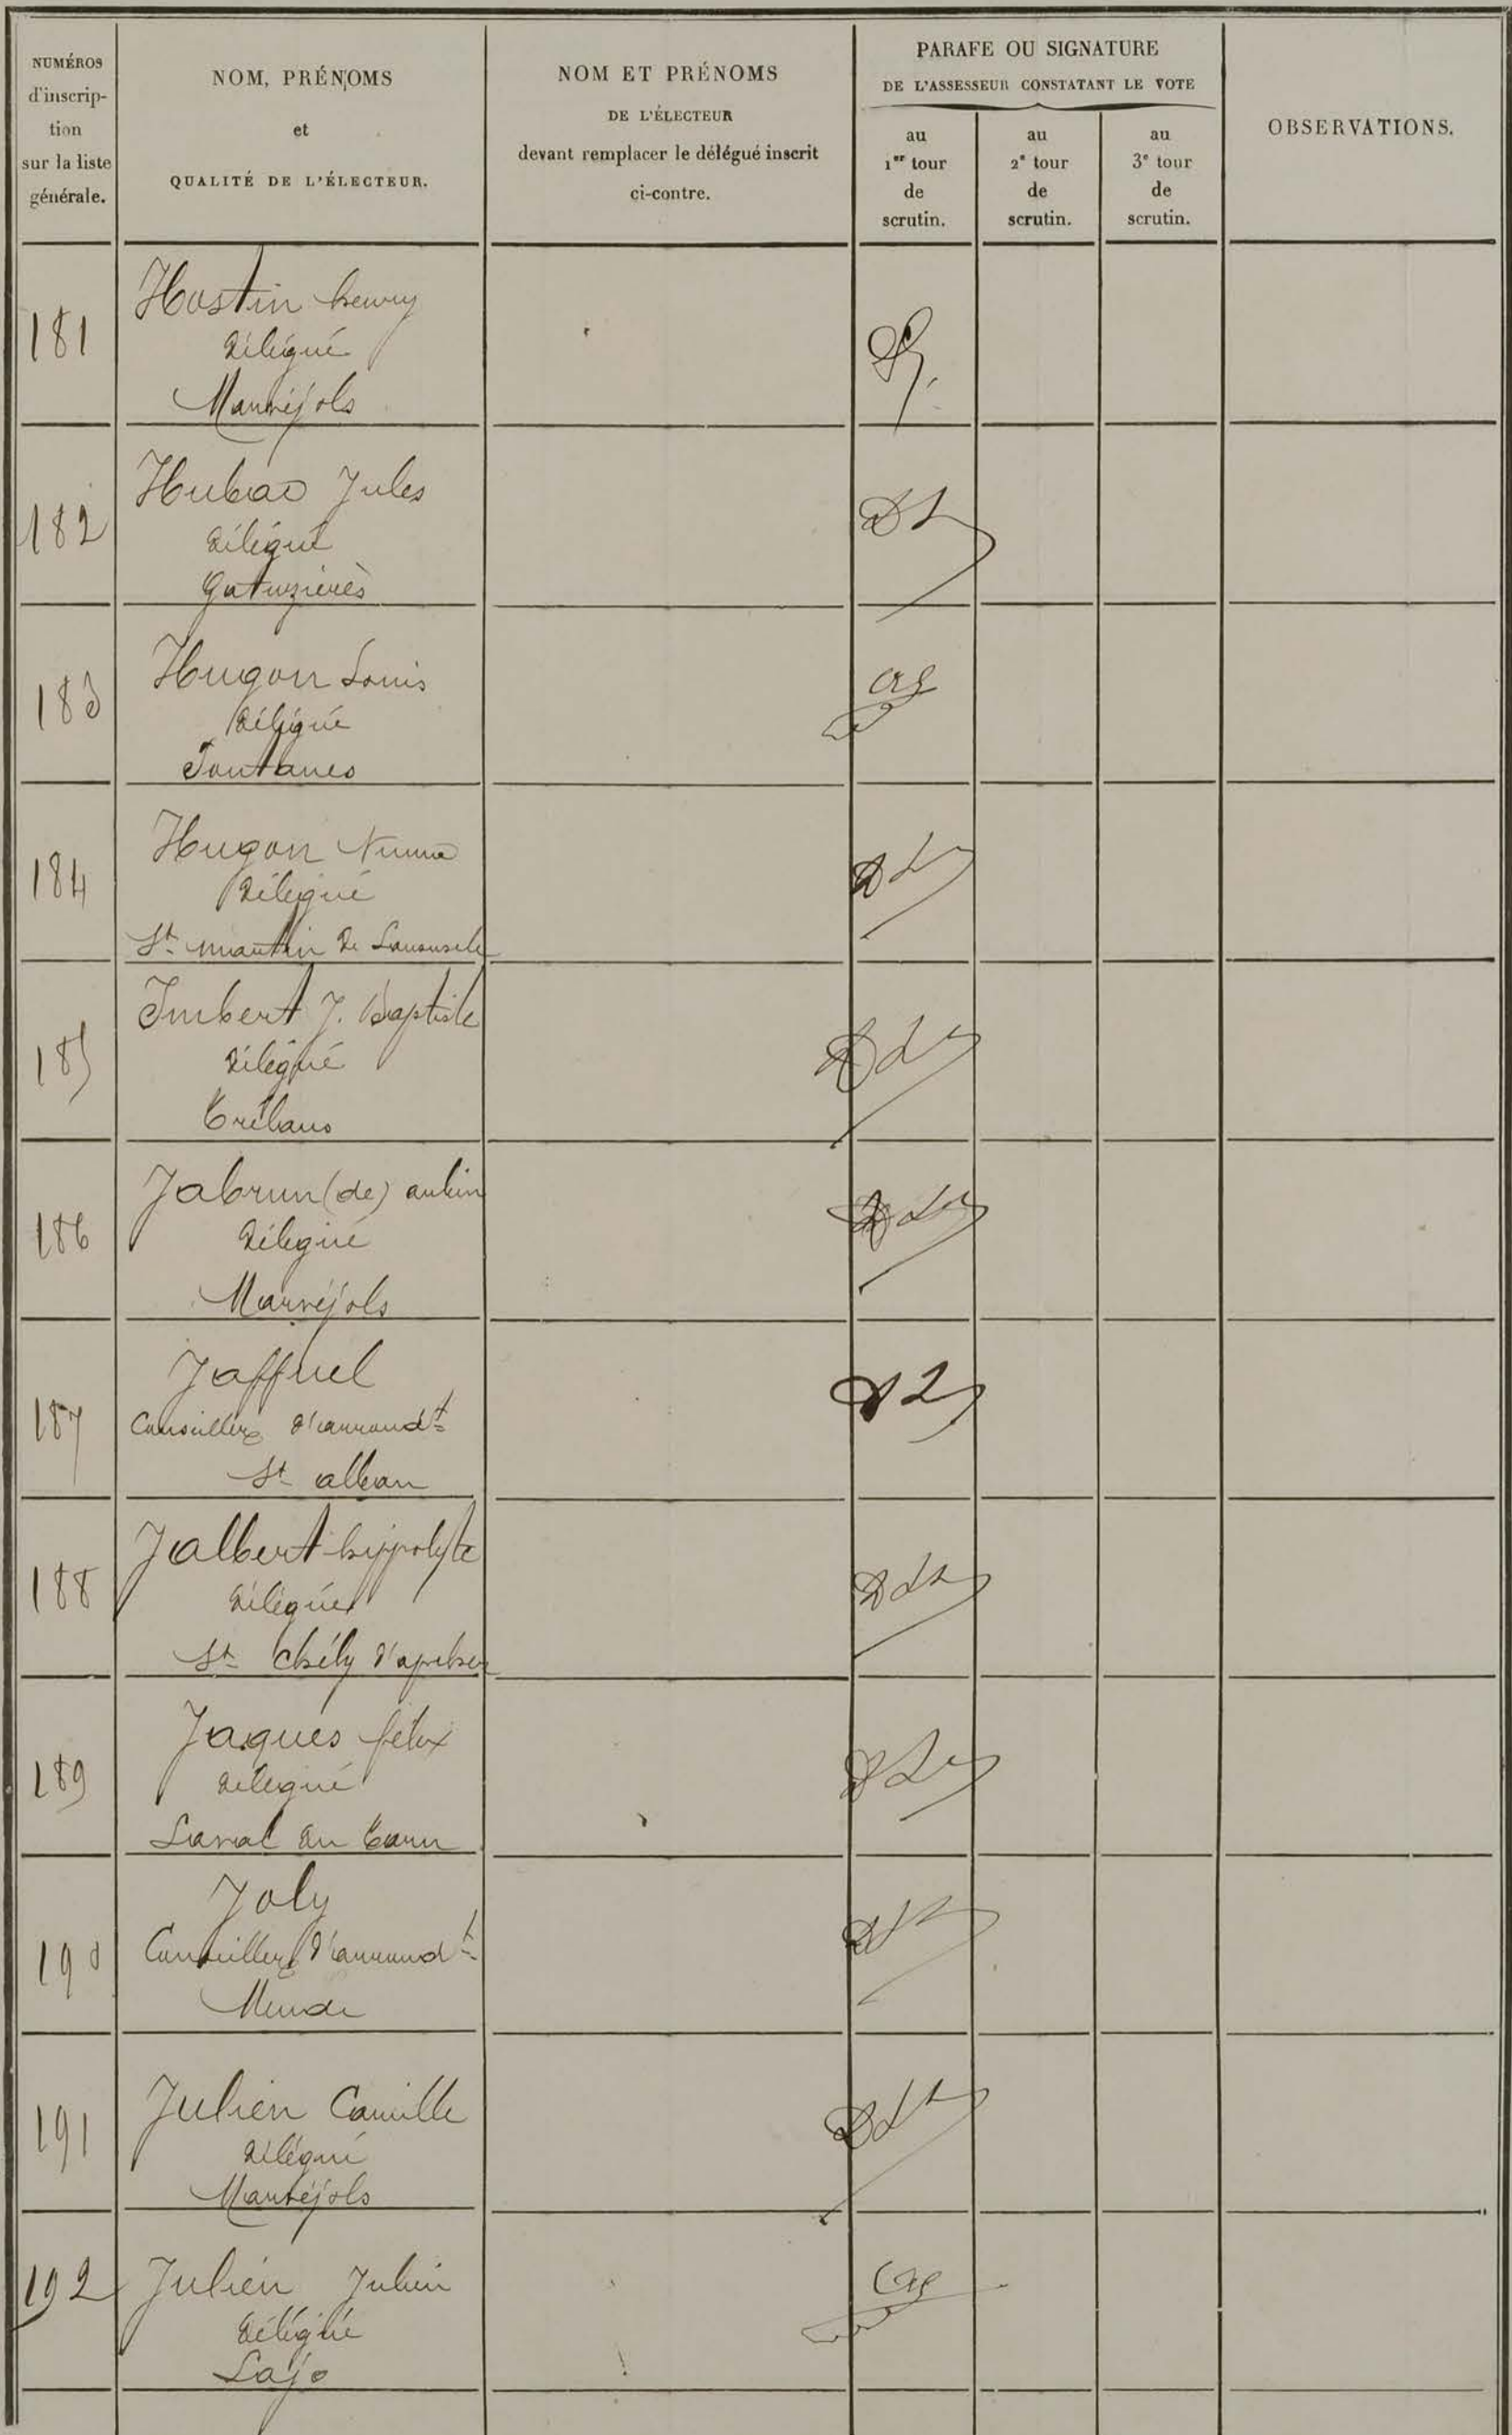 NUMÉROS
d'inscrip-
tion
sur la liste
générale.
NOM, PRÉNOMS
et
QUALITÉ DE L'ÉLECTEUR.
NOM ET PRÉNOMS
DE L'ÉLECTEUR
devant remplacer le délégué inscrit
ci-contre.
PARAFE OU SIGNATURE
DE L'ASSESSEUR CONSTATANT LE VOTE
au
1er tour
de
scrutin.
au
2e tour
de
scrutin.
au
3e tour
de
scrutin.
OBSERVATIONS.
181
Hostin henry
délégué
Marvéjols
182
Hubac Jules
délégué
Gatuzières
183
Hugon Louis
délégué
Fontanes
184
Hugon Numa
délégué
St martin de
185
Imbert J. Baptiste
délégué
Trélans
186
Jabrun (de) aubin
délégué
Marvéjols
187
Jaffuel
Conseiller d'arrondt
St alban
188
Jalbert hippolyte
délégué
St Chély d'apcher
189
Jaques félix
délégué
Laval du Tarn
190
Joly
Conseiller d'arrondt
Mende
191
Julien Camille
délégué
Marvéjols
192
Julien Julien
délégué
Lajo